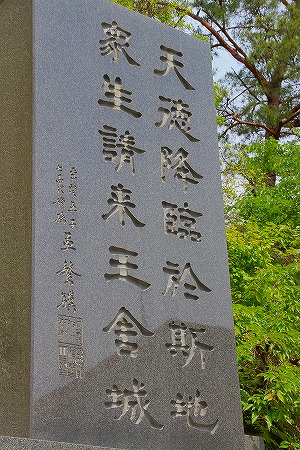 天德降臨於斯地
衆生請来王舎城